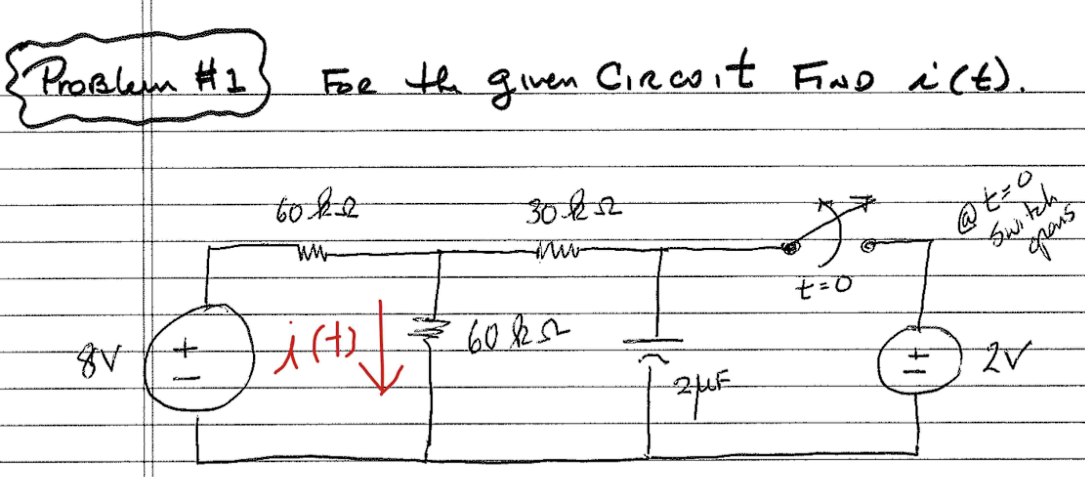 Problem #1 For the given Circuit Find i(t).
60kΩ
30kΩ
@ t=0
switch
opens
t=0
8V
+
-
i(t)
60kΩ
2μF
+
-
2V